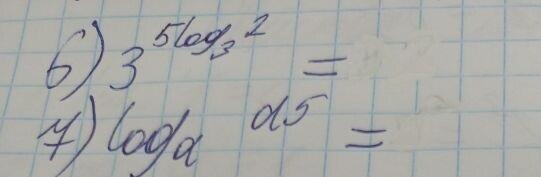 6) 3^{5log_3 2} =
7) log_a a^5 =